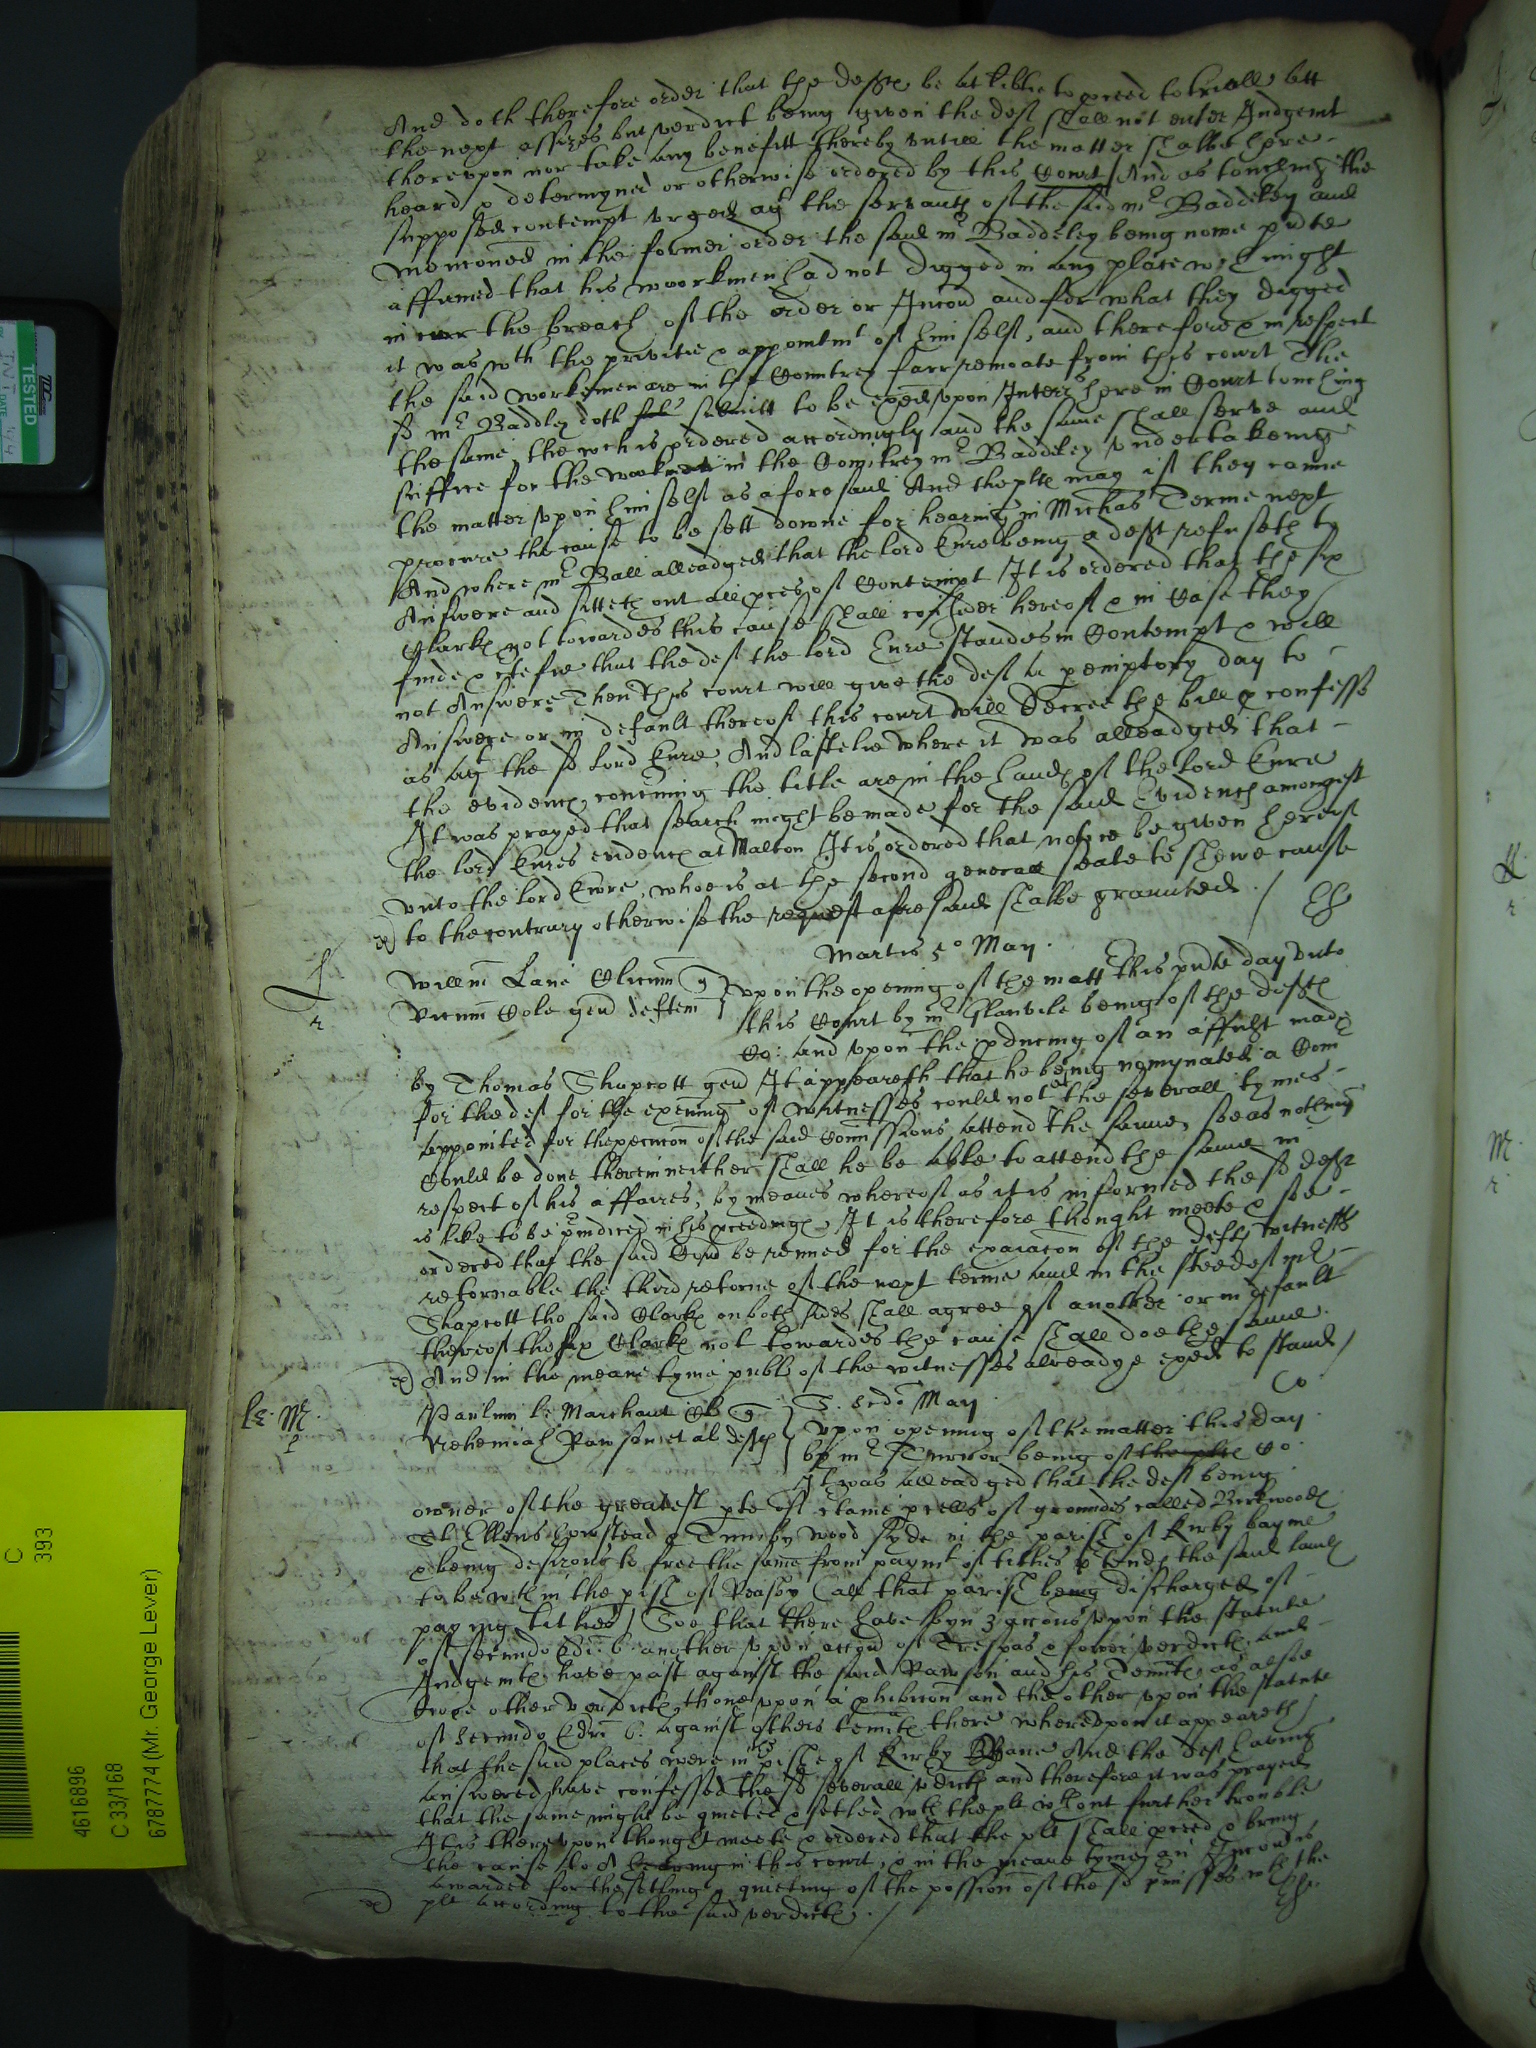 And doth therefore order that the defts be att libtie to pceed to triall att
the next assizes but verdict being given the deft shall not enter Judgemt
thereupon nor take any benefitt thereby untill the matter shalbe here
heard & determyned or otherwise ordered by this Court / And as touching the
supposed contempt urged agt the servants of the said mr Baddeley and
menconed in the former order the said mr Baddeley being nowe pnte
affirmed that his workmen had not digged in any place wch might
incurr the breach of the order or Inconn and for what they digged
it was wth the privitie & appointmt of himself, and therefore & in respect
the said workmen are in the Countrey farr remoate from this court The
sd mr Baddley doth submitt to be exed upon Interrs here in Court tuching
the same, the wch is ordered accordingly and the same shall serve and
suffice for the workmen in the Countrey mr Baddeley undertakeing
the matter upon himself as aforesaid And the plts may if they canne
procure the cause to be sett downe for hearing in Michas Terme next
And where mr Ball alleadged that the lord Eure being a deft refuseth to
Answere and sitteth out all pces of Contempt It is ordered that the six
Clarks not towardes this cause shall consider hereof & in Case they
finde & ctefie that the deft the lord Eure standes in Contempt & will
not Answere Then this court will give the deft a pemptory day to
Answere or in default thereof this court will decree the bill & confesse
as agt the sd lord Eure, And lastelie where it was alleadged that
the evidence concning the title are in the hands of the lord Eure
It was prayed that search might be made for the said Evidence amongest
the lord Eures evidence at Malton It is ordered that notice be given hereof
unto the lord Eure, whoe is at the second generall seale to shewe cause
to the contrary otherwise the request aforesaid shalbe graunted /
Martis 5o May
Willm Lane Clicum q
Ricum Cole gen deftem
upon the opening of the mattr this pnte day unto
this Court by mr Glanvile being of the defts
Co: and upon the pducing of an affidt made
by Thomas Shapcott gen It appeareth that he being nomynated a Comr
for the deft for the exening of witnesses could not the severall tymes
appointed for thexecucon of the said Comissions attend the same, soe as nothing
Could be done therein neither shall he be able to attend the same in
respect of his affaires, by meanes whereof as it is informed the sd deft
is like to be preiudiced in his pceedings, It is therefore thought meete & soe
ordered that the said Comn be renued for the exaiacon of the defts witnesses
retornable the third retorne of the next terme and in the steed of mr
Shapcott the said Clarks on both sides shall agree of another or in default
thereof the six Clarks not towardes the cause shall doe the same.
And in the meane tyme publ of the witnesses alreadye exed to stand /
Paulum le Marchant Cl q
Nehemiah Rawson et al defts
T. scdo May
Upon opening of the matter this day
by mr Turnor being of the plts Co.
It was alleadged that the deft being
owner of the greatest pte of ctaine pcells of groundes called Birkwoods
St Ellens howstead & Tumby wood syde in the parish of Kirby bayne
& being desirous to free the same from paymt of tithes p tends the said lands
to be wth in the pish of Reasby (all that parish being discharged of
paying tithes) Soe that there have ben 3 accons upon the statute
of secundo Edri 6. another upon accon of Trespas & fower verdicts and
Judgemts have past against the said Rawson and his Tennts, as alsoe
twoe other verdicts, thone upon a phibicon and the other upon the statute
of secundo Edri 6. against others tennts there whereupon it appeareth
that the said places were in the pishe of Kirby Bayne And the deft having
answered have confessed the sd severall vdicts and therefore it was prayed
that the same might be quieted & setled wth the plt wthout further trouble
It is thereupon thought meete & ordered that the plt shall pceed & bring
the cause to a hearing in this court, & in the meane tyme an Inconn is
awarded for the setling & quieting of the possion of the sd pmisses wth the
plt according to the said verdicts. /
TESTED
C
393
4616896
C 33/168
6787774 (Mr. George Lever)